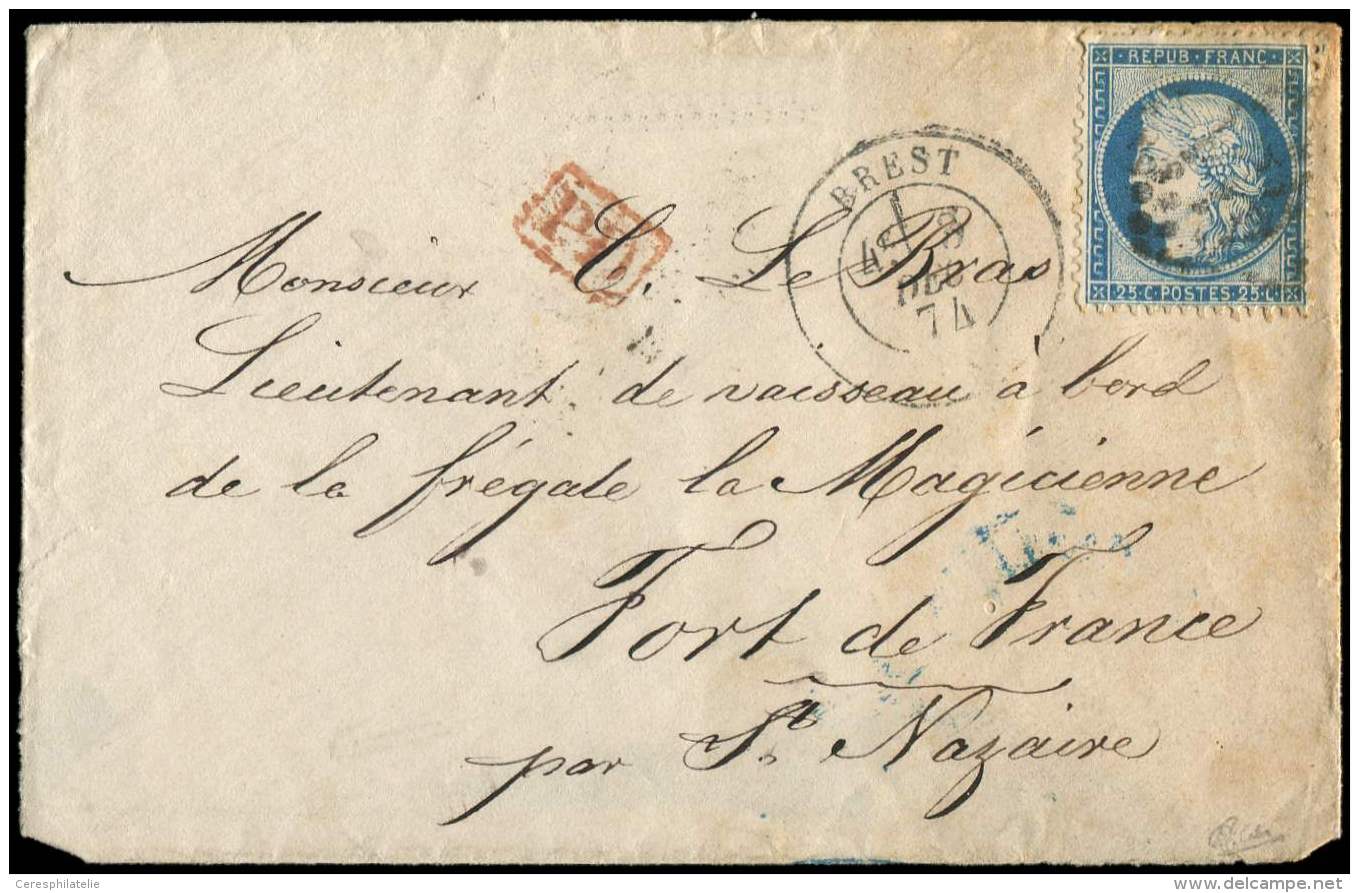 REPUB · FRANC
25·C·POSTES·25·C
BREST
4E 8
DEC
74
PD
Monsieur C. Le Bras
Lieutenant de vaisseau à bord
de la frégate la Magicienne
Fort de France
par St. Nazaire
Ceresphilatelie
www.delcampe.net